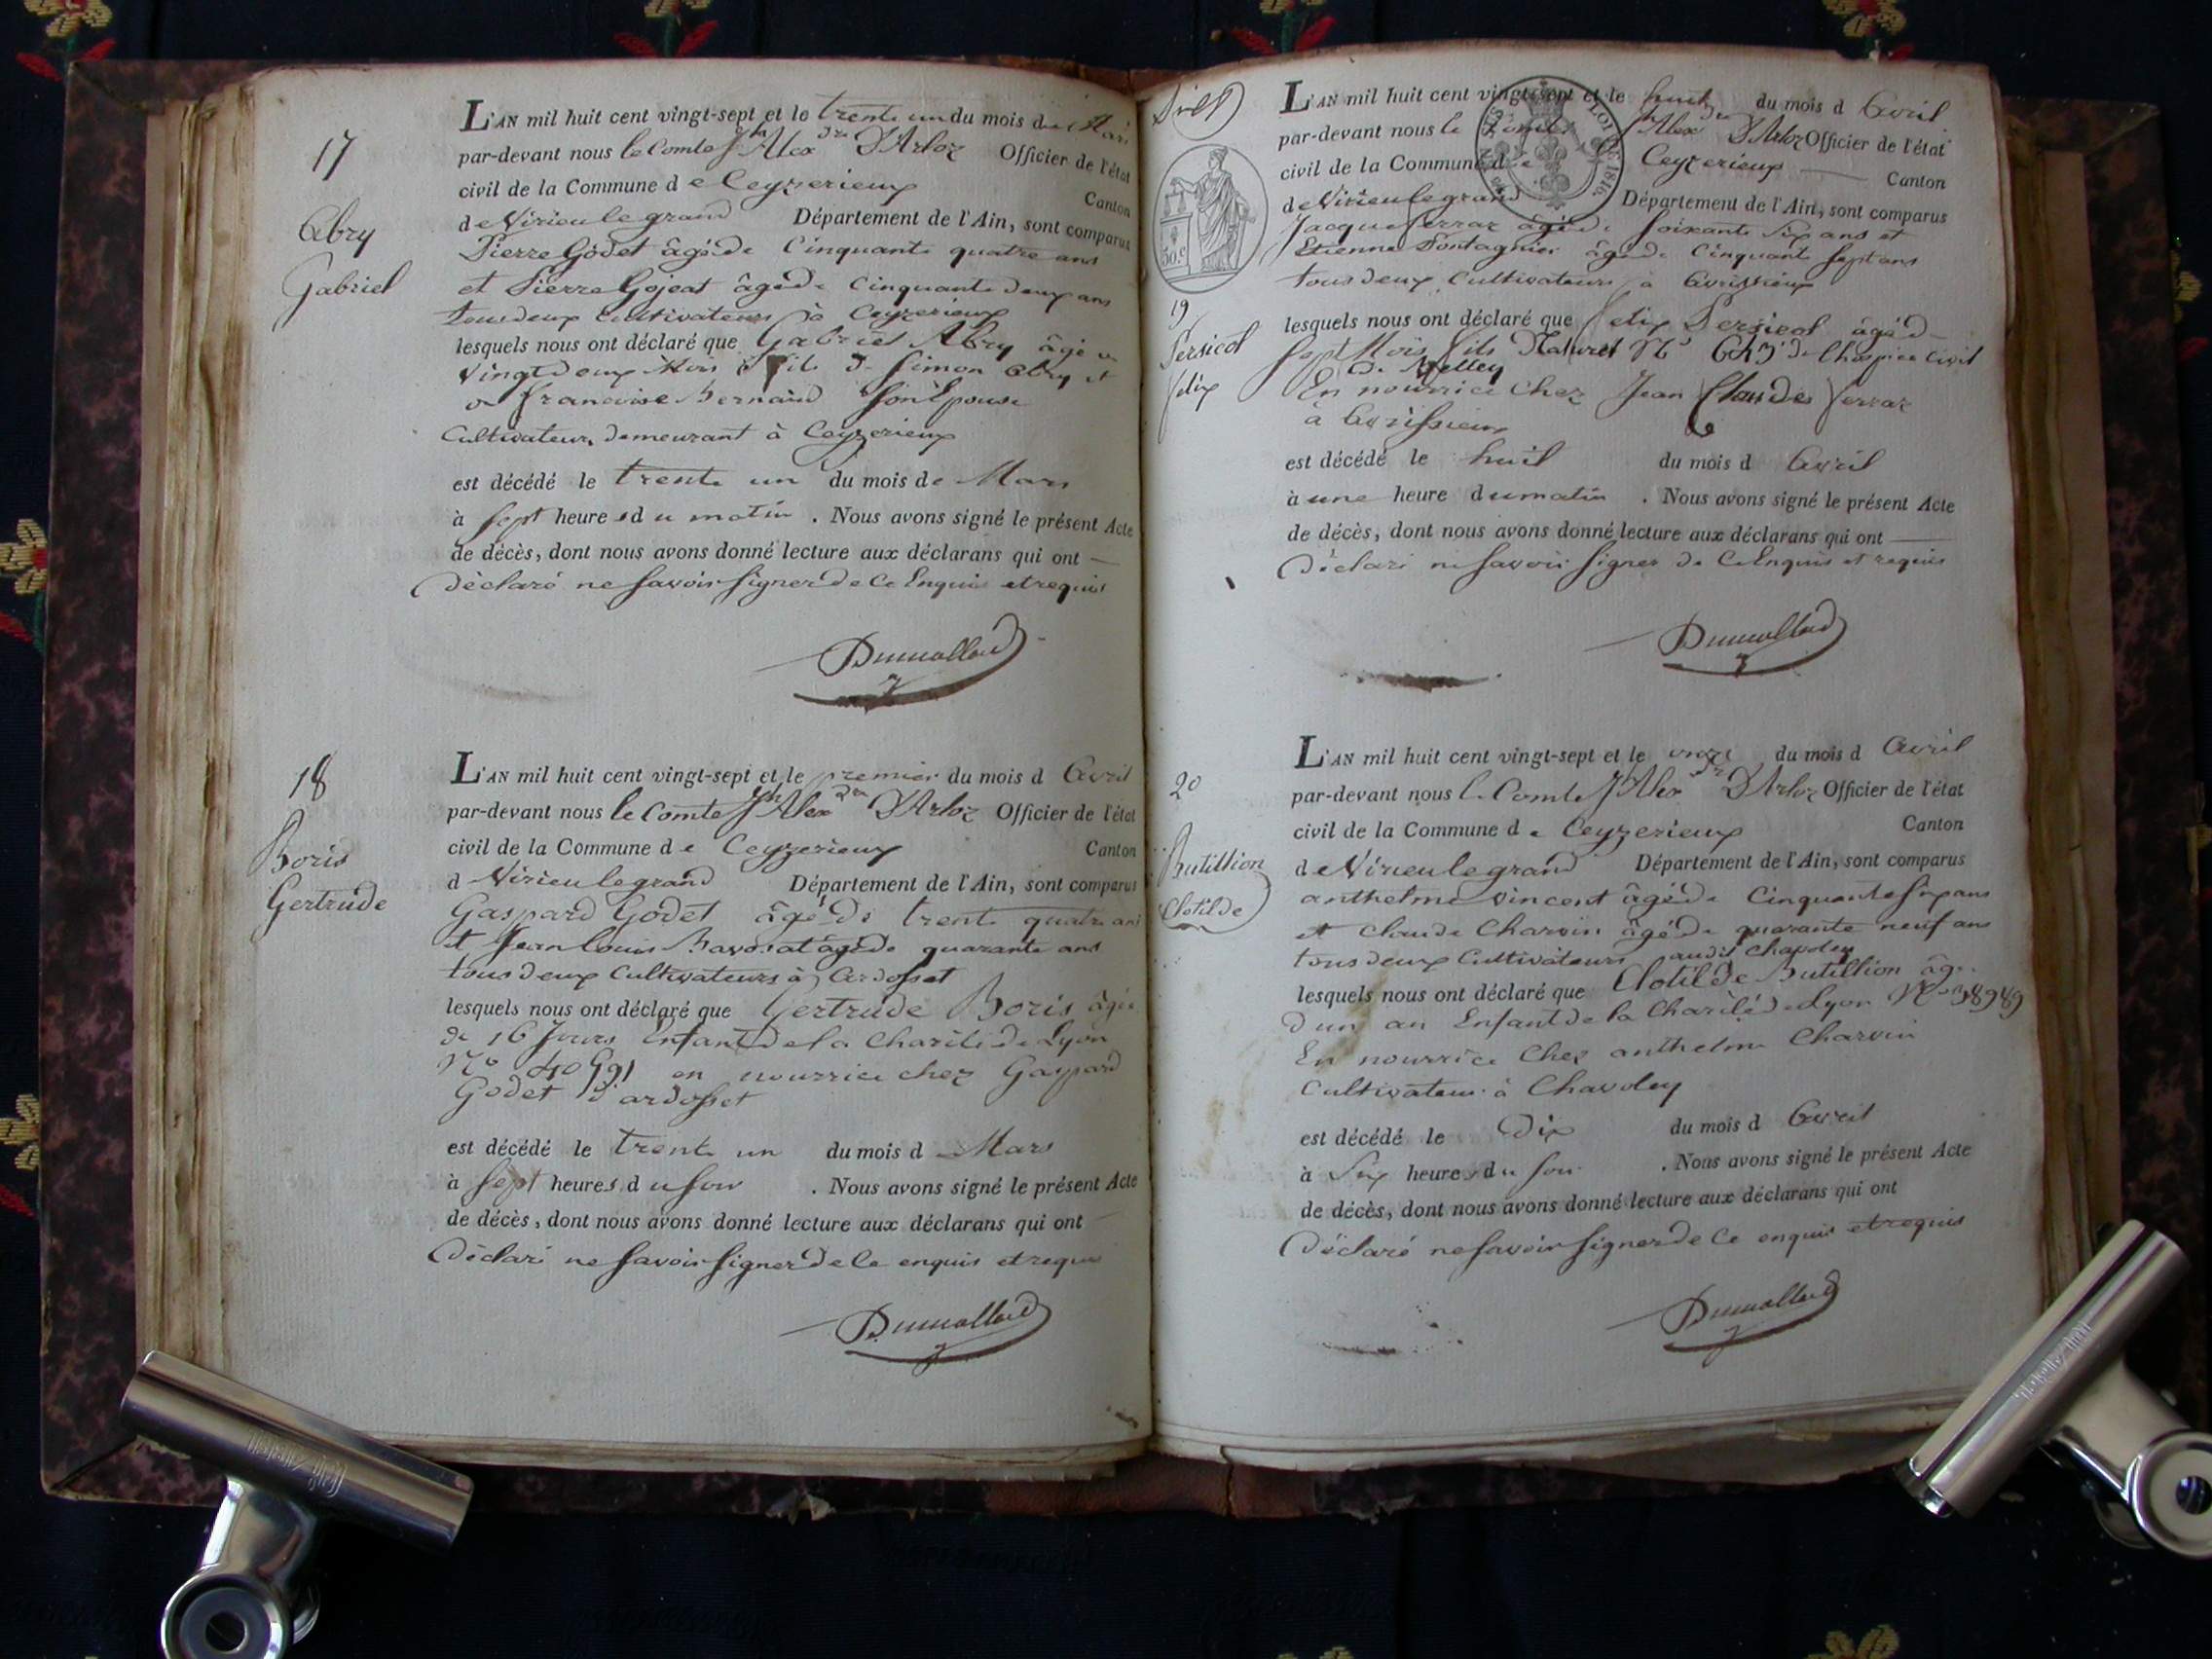 17
Abry
Gabriel
L'AN mil huit cent vingt-sept et le trente un du mois de Mars
par-devant nous le Comte Jh Alexdre D'Arloz Officier de l'état
civil de la Commune de Ceyzerieux Canton
de Virieu le grand Département de l'Ain, sont comparus
Pierre Godet âgé de Cinquante quatre ans
et Pierre Gojeat âgé de Cinquante deux ans
tous deux Cultivateurs à Ceyzerieux
lesquels nous ont déclaré que Gabriel Abry âgé de
vingt deux Mois fils de Simon Abry et
de francoise Bernard Son Epouse
Cultivateurs demeurant à Ceyzerieux
est décédé le trente un du mois de Mars
à Sept heures du matin . Nous avons signé le présent Acte
de décès, dont nous avons donné lecture aux déclarans qui ont
Déclaré ne Savoir Signer de Ce Enquis et requis
Dumollard
18
Boris
Gertrude
L'AN mil huit cent vingt-sept et le premier du mois d Avril
par-devant nous le Comte Jh Alexdre D'Arloz Officier de l'état
civil de la Commune de Ceyzerieux Canton
d Virieu le grand Département de l'Ain, sont comparus
Gaspard Godet âgé de trente quatre ans
et Jean Louis Bavosat âgé de quarante ans
tous deux Cultivateurs à Ardosset
lesquels nous ont déclaré que Gertrude Boris âgée
de 16 Jours Enfant de la Charité de Lyon
No en nourrice chez Gaspard
Godet d'ardosset
est décédé le trente un du mois d Mars
à Sept heures du Soir . Nous avons signé le présent Acte
de décès, dont nous avons donné lecture aux déclarans qui ont
Déclaré ne Savoir Signer de Ce enquis et requis
Dumollard
LOI DE 1816.
50.c
L'AN mil huit cent vingt-sept et le huit du mois d Avril
par-devant nous le Comte Jh Alexdre D'Arloz Officier de l'état
civil de la Commune de Ceyzerieux Canton
de Virieu le grand Département de l'Ain, sont comparus
Jacque ferraz âgé de Soixante Six ans et
Etienne Pontagnier âgé de Cinquante Sept ans
tous deux Cultivateurs à Avrissieux
19
Persicol
félix
lesquels nous ont déclaré que félix Persicol âgé d
Sept Mois fils Naturel No de lhospice Civil
de Belley
En nourrice Chez Jean Claude ferraz
à Avrissieux
est décédé le huit du mois d Avril
à une heure du matin . Nous avons signé le présent Acte
de décès, dont nous avons donné lecture aux déclarans qui ont
Déclaré ne Savoir Signer de Ce Enquis et requis
Dumollard
20
Butillion
Clotilde
L'AN mil huit cent vingt-sept et le onze du mois d Avril
par-devant nous le Comte Jh Alexdre D'Arloz Officier de l'état
civil de la Commune de Ceyzerieux Canton
de Virieu le grand Département de l'Ain, sont comparus
anthelme Vincent âgé de Cinquante Six ans
et Claude Charvin âgé de quarante neuf ans
tous deux Cultivateurs audit Chavoley
lesquels nous ont déclaré que Clotilde Butillion âgée
d'un an Enfant de la Charité de Lyon No 38989
En nourrice Chez anthelme Charvin
Cultivateur à Chavoley
est décédé le Dix du mois d Avril
à Six heures du Soir . Nous avons signé le présent Acte
de décès, dont nous avons donné lecture aux déclarans qui ont
Déclaré ne Savoir Signer de Ce enquis et requis
Dumollard